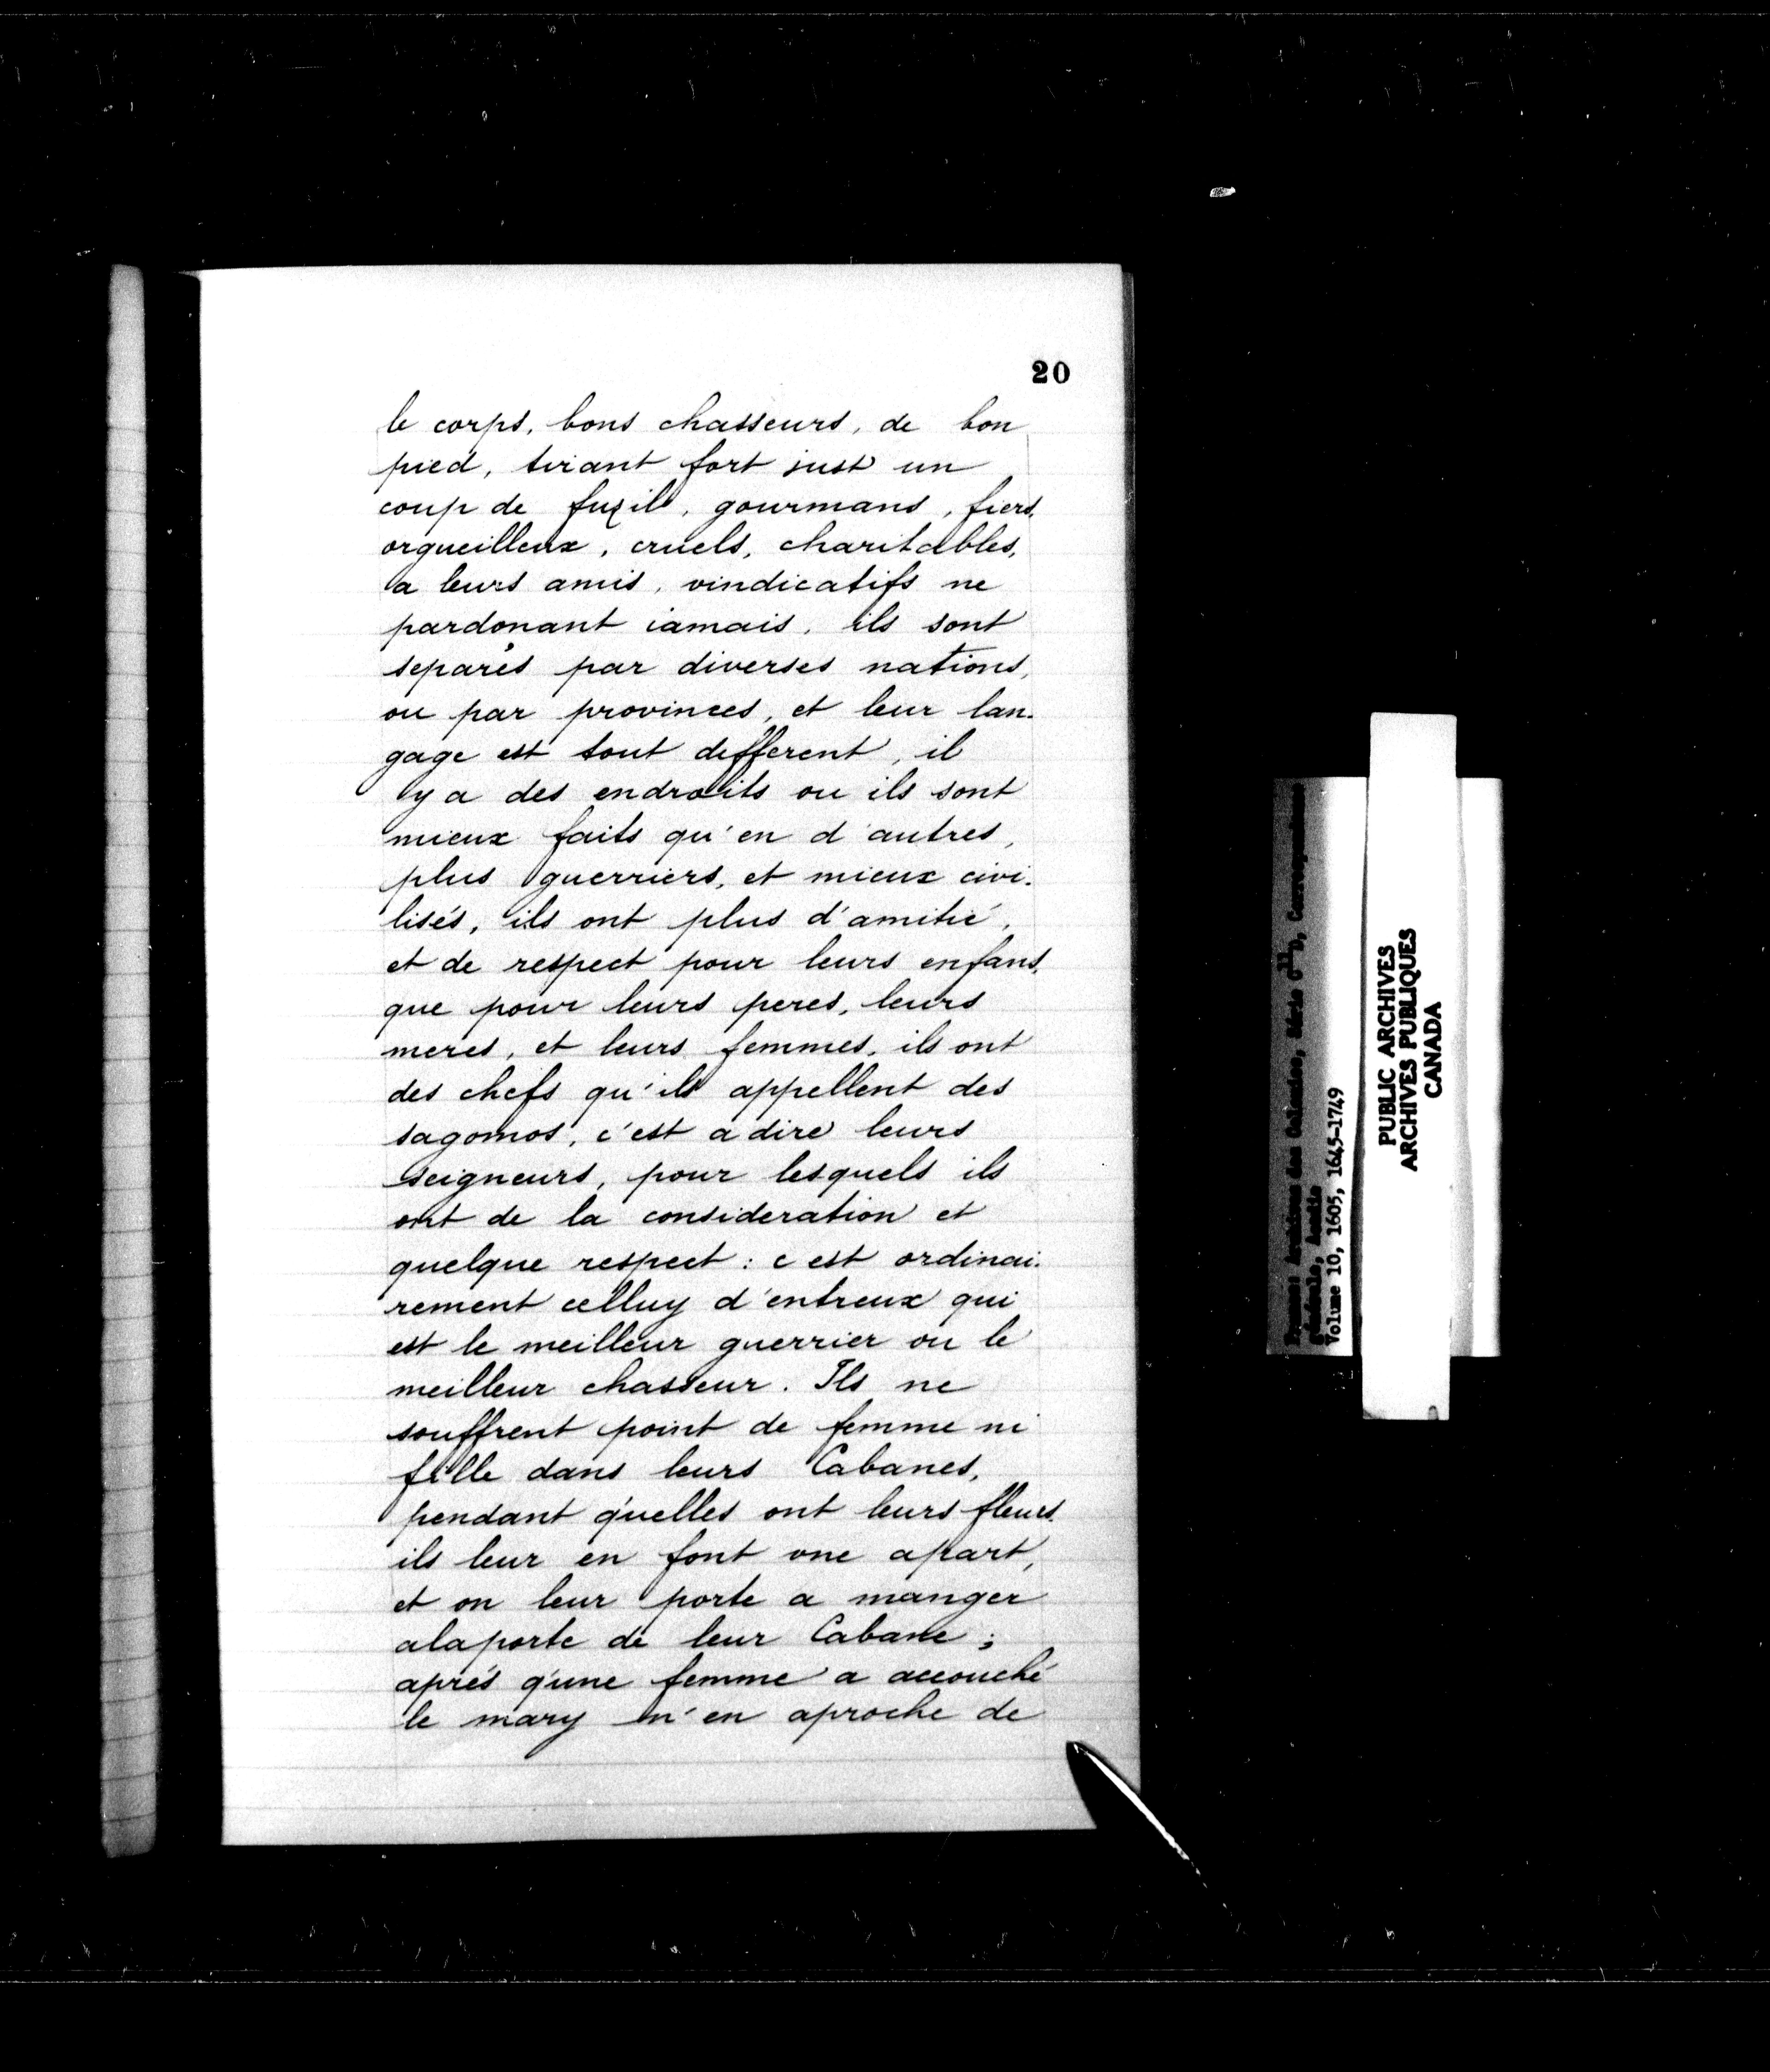 20
le corps, bons chasseurs, de bon
pied, tirant fort just un
coup de fuzil, gourmans, fiers,
orgueilleux, cruels, charitables,
a leurs amis, vindicatifs ne
pardonant iamais, ils sont
separés par diverses nations,
ou par provinces, et leur lan-
gage est tout different, il
y a des endroits ou ils sont
mieux faits qu'en d'autres,
plus guerriers, et mieux civi-
lisés, ils ont plus d'amitié,
et de respect pour leurs enfans,
que pour leurs peres, leurs
meres, et leurs femmes, ils ont
des chefs qu'ils appellent des
sagomos, c'est a dire leurs
seigneurs, pour lesquels ils
ont de la consideration et
quelque respect : c est ordinai-
rement celluy d'entreux qui
est le meilleur guerrier ou le
meilleur chasseur. Ils ne
souffrent point de femme ni
fille dans leurs Cabanes,
pendant q'uelles ont leurs fleurs,
ils leur en font une apart,
et on leur porte a manger
alaporte de leur Cabane ;
aprés q'une femme a accouché
le mary n'en aproche de
PUBLIC ARCHIVES
ARCHIVES PUBLIQUES
CANADA
France: Archives des Colonies, Série C11D, Correspondance
générale, Acadie
Volume 10, 1605, 1645-1749